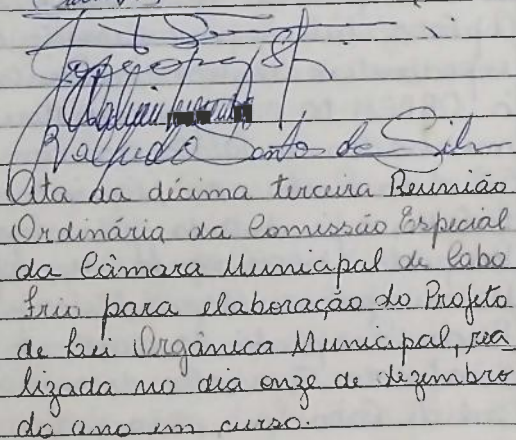 Santos da Silva
Ata da décima terceira Reunião
Ordinária da Comissão Especial
da Câmara Municipal de Cabo
Frio para elaboração do Projeto
de Lei Orgânica Municipal, rea
lizada no dia onze de dezembro
do ano em curso.